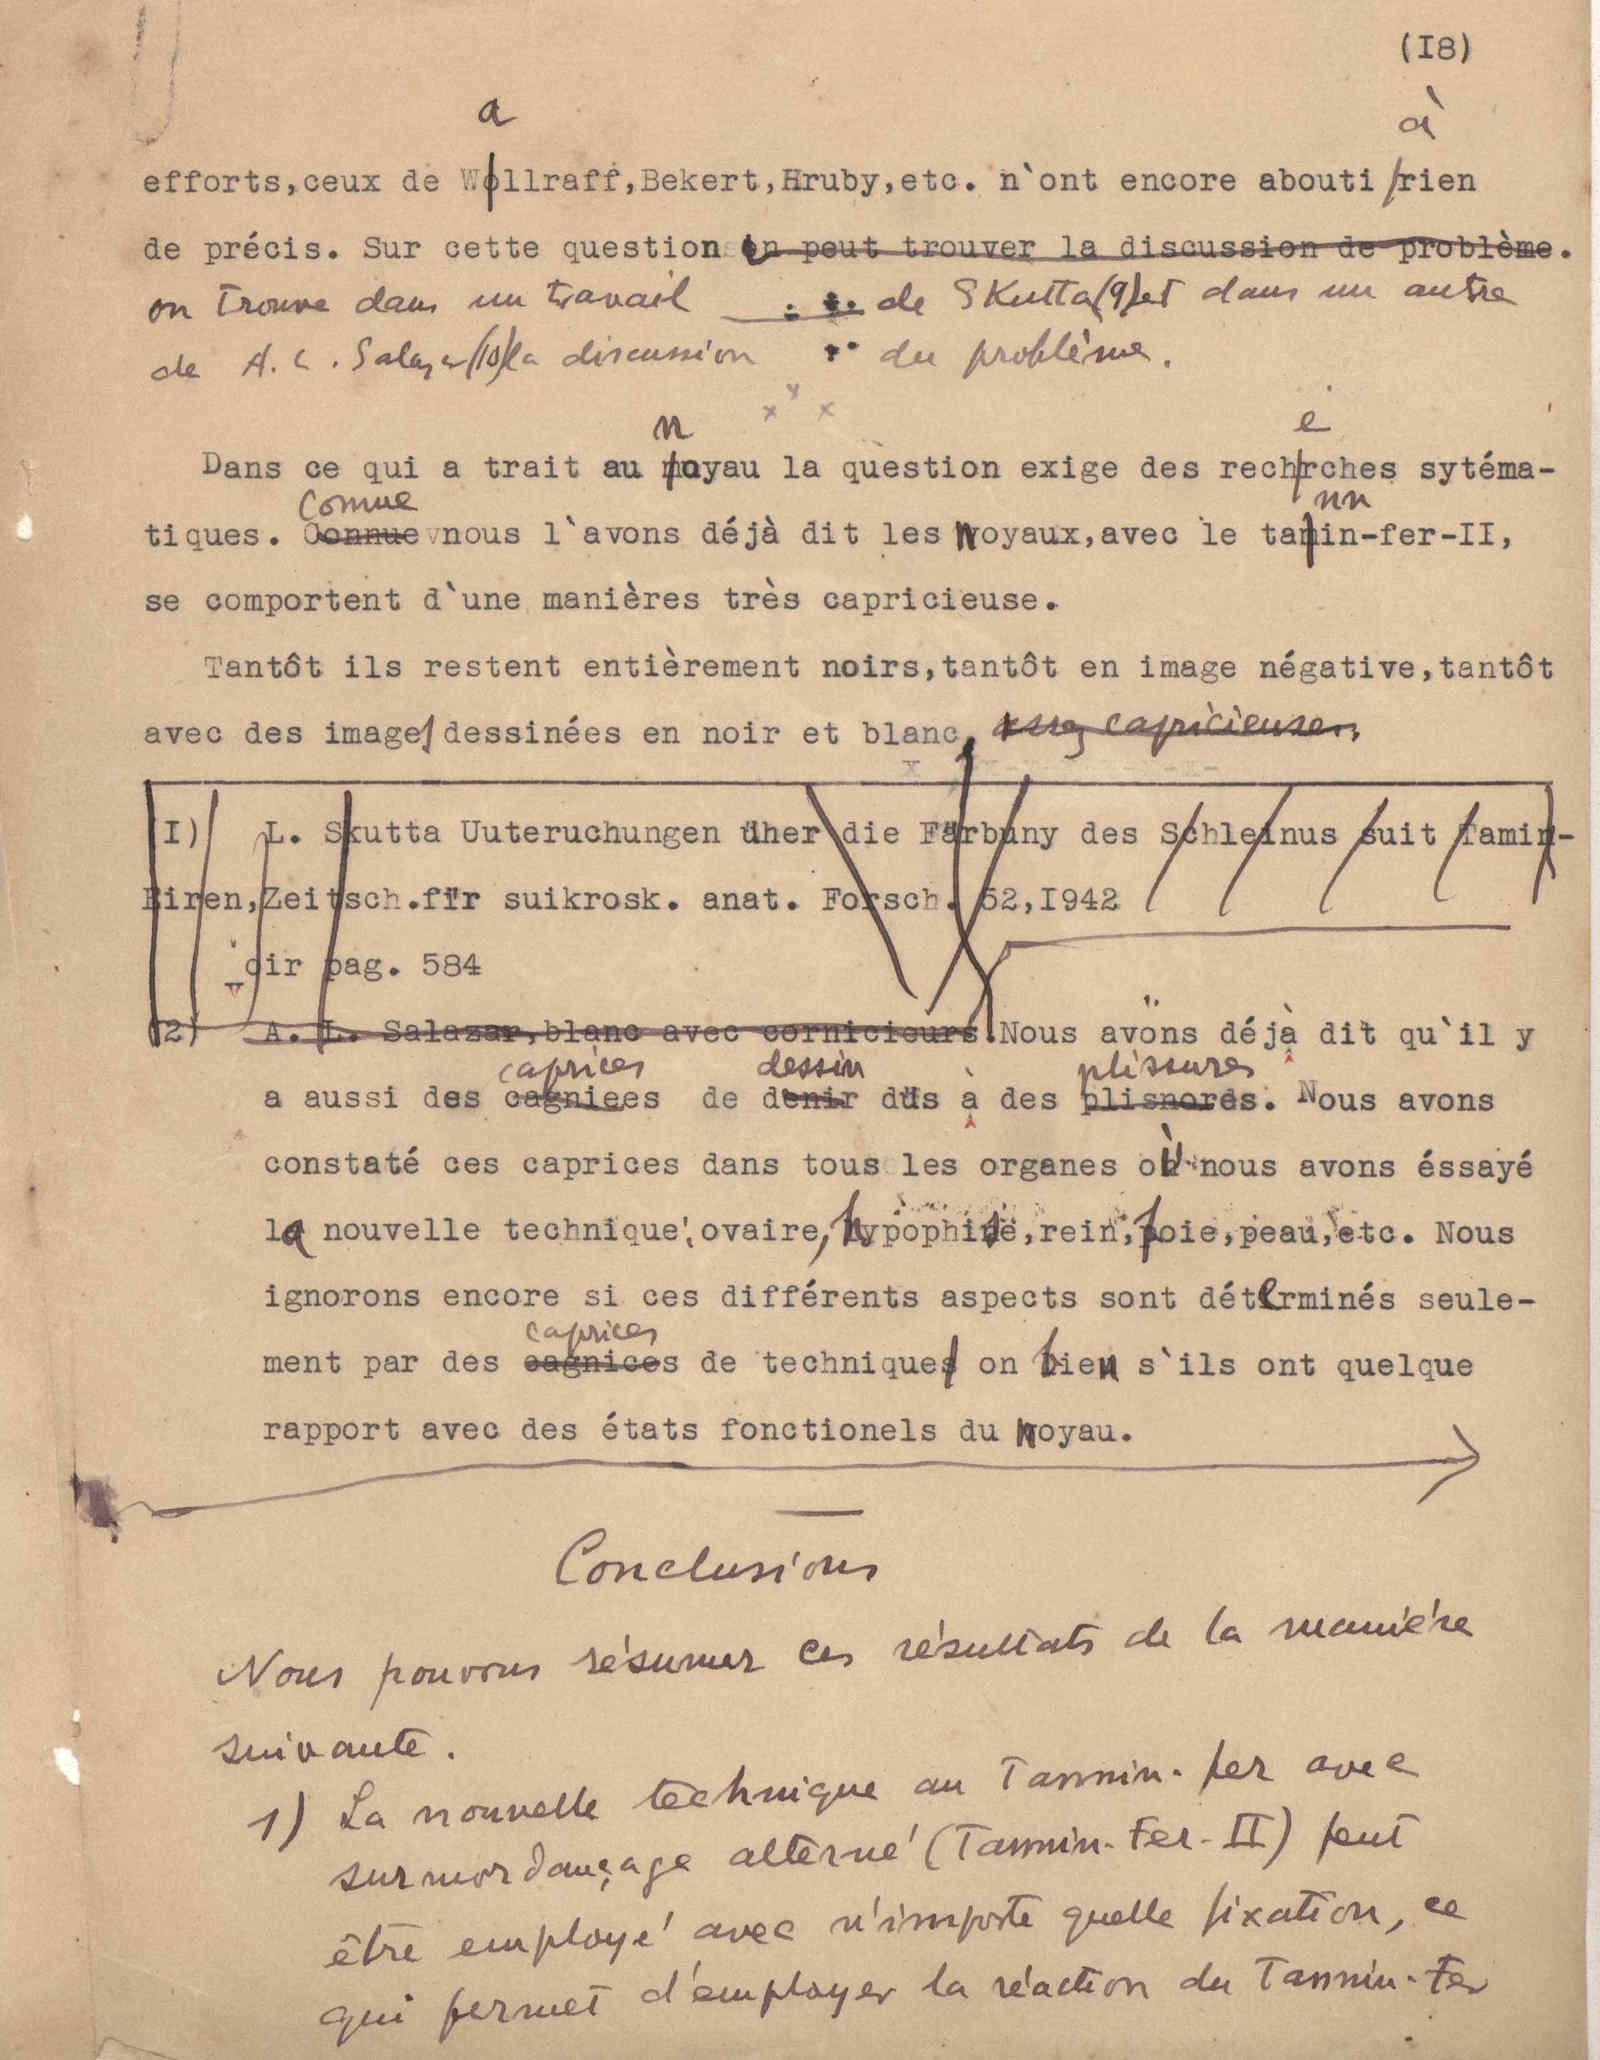 (I8)
a
à
efforts,ceux de Wollraff,Bekert,Hruby,etc. n`ont encore abouti rien
de précis. Sur cette question on peut trouver la discussion de problème.
on trouve dans un travail de Skutta (9) et dans un autre
de A. L. Salazar (10) la discussion du problème.
x x x
n
e
Dans ce qui a trait au noyau la question exige des rechrches sytéma-
Comme
nn
tiques. Connue nous l`avons déjà dit les noyaux,avec le tanin-fer-II,
se comportent d`une manières très capricieuse.
Tantôt ils restent entièrement noirs,tantôt en image négative,tantôt
avec des image dessinées en noir et blanc, capricieuses
I) L. Skutta Uuteruchungen üher die Färbuny des Schleinus suit Tamin-
Eiren,Zeitsch.für suikrosk. anat. Forsch. 52,I942
voir pag. 584
(2) A. L. Salazar,blanc avec cornicieurs.Nous avons déjà dit qu`il y
caprices dessin plissures
a aussi des cagniees de denir düs à des plisnores. Nous avons
constaté ces caprices dans tous les organes où nous avons éssayé
la nouvelle technique: ovaire, hypophise,rein,foie,peau,etc. Nous
ignorons encore si ces différents aspects sont déterminés seule-
caprices
ment par des cagnices de technique on bien s`ils ont quelque
rapport avec des états fonctionels du noyau.
Conclusions
Nous pouvons résumer ces résultats de la manière
suivante.
1) La nouvelle technique au Tannin-fer avec
surmordançage alterné (Tannin-Fer-II) peut
être employé avec n'importe quelle fixation, ce
qui permet d'employer la réaction du Tannin-Fer